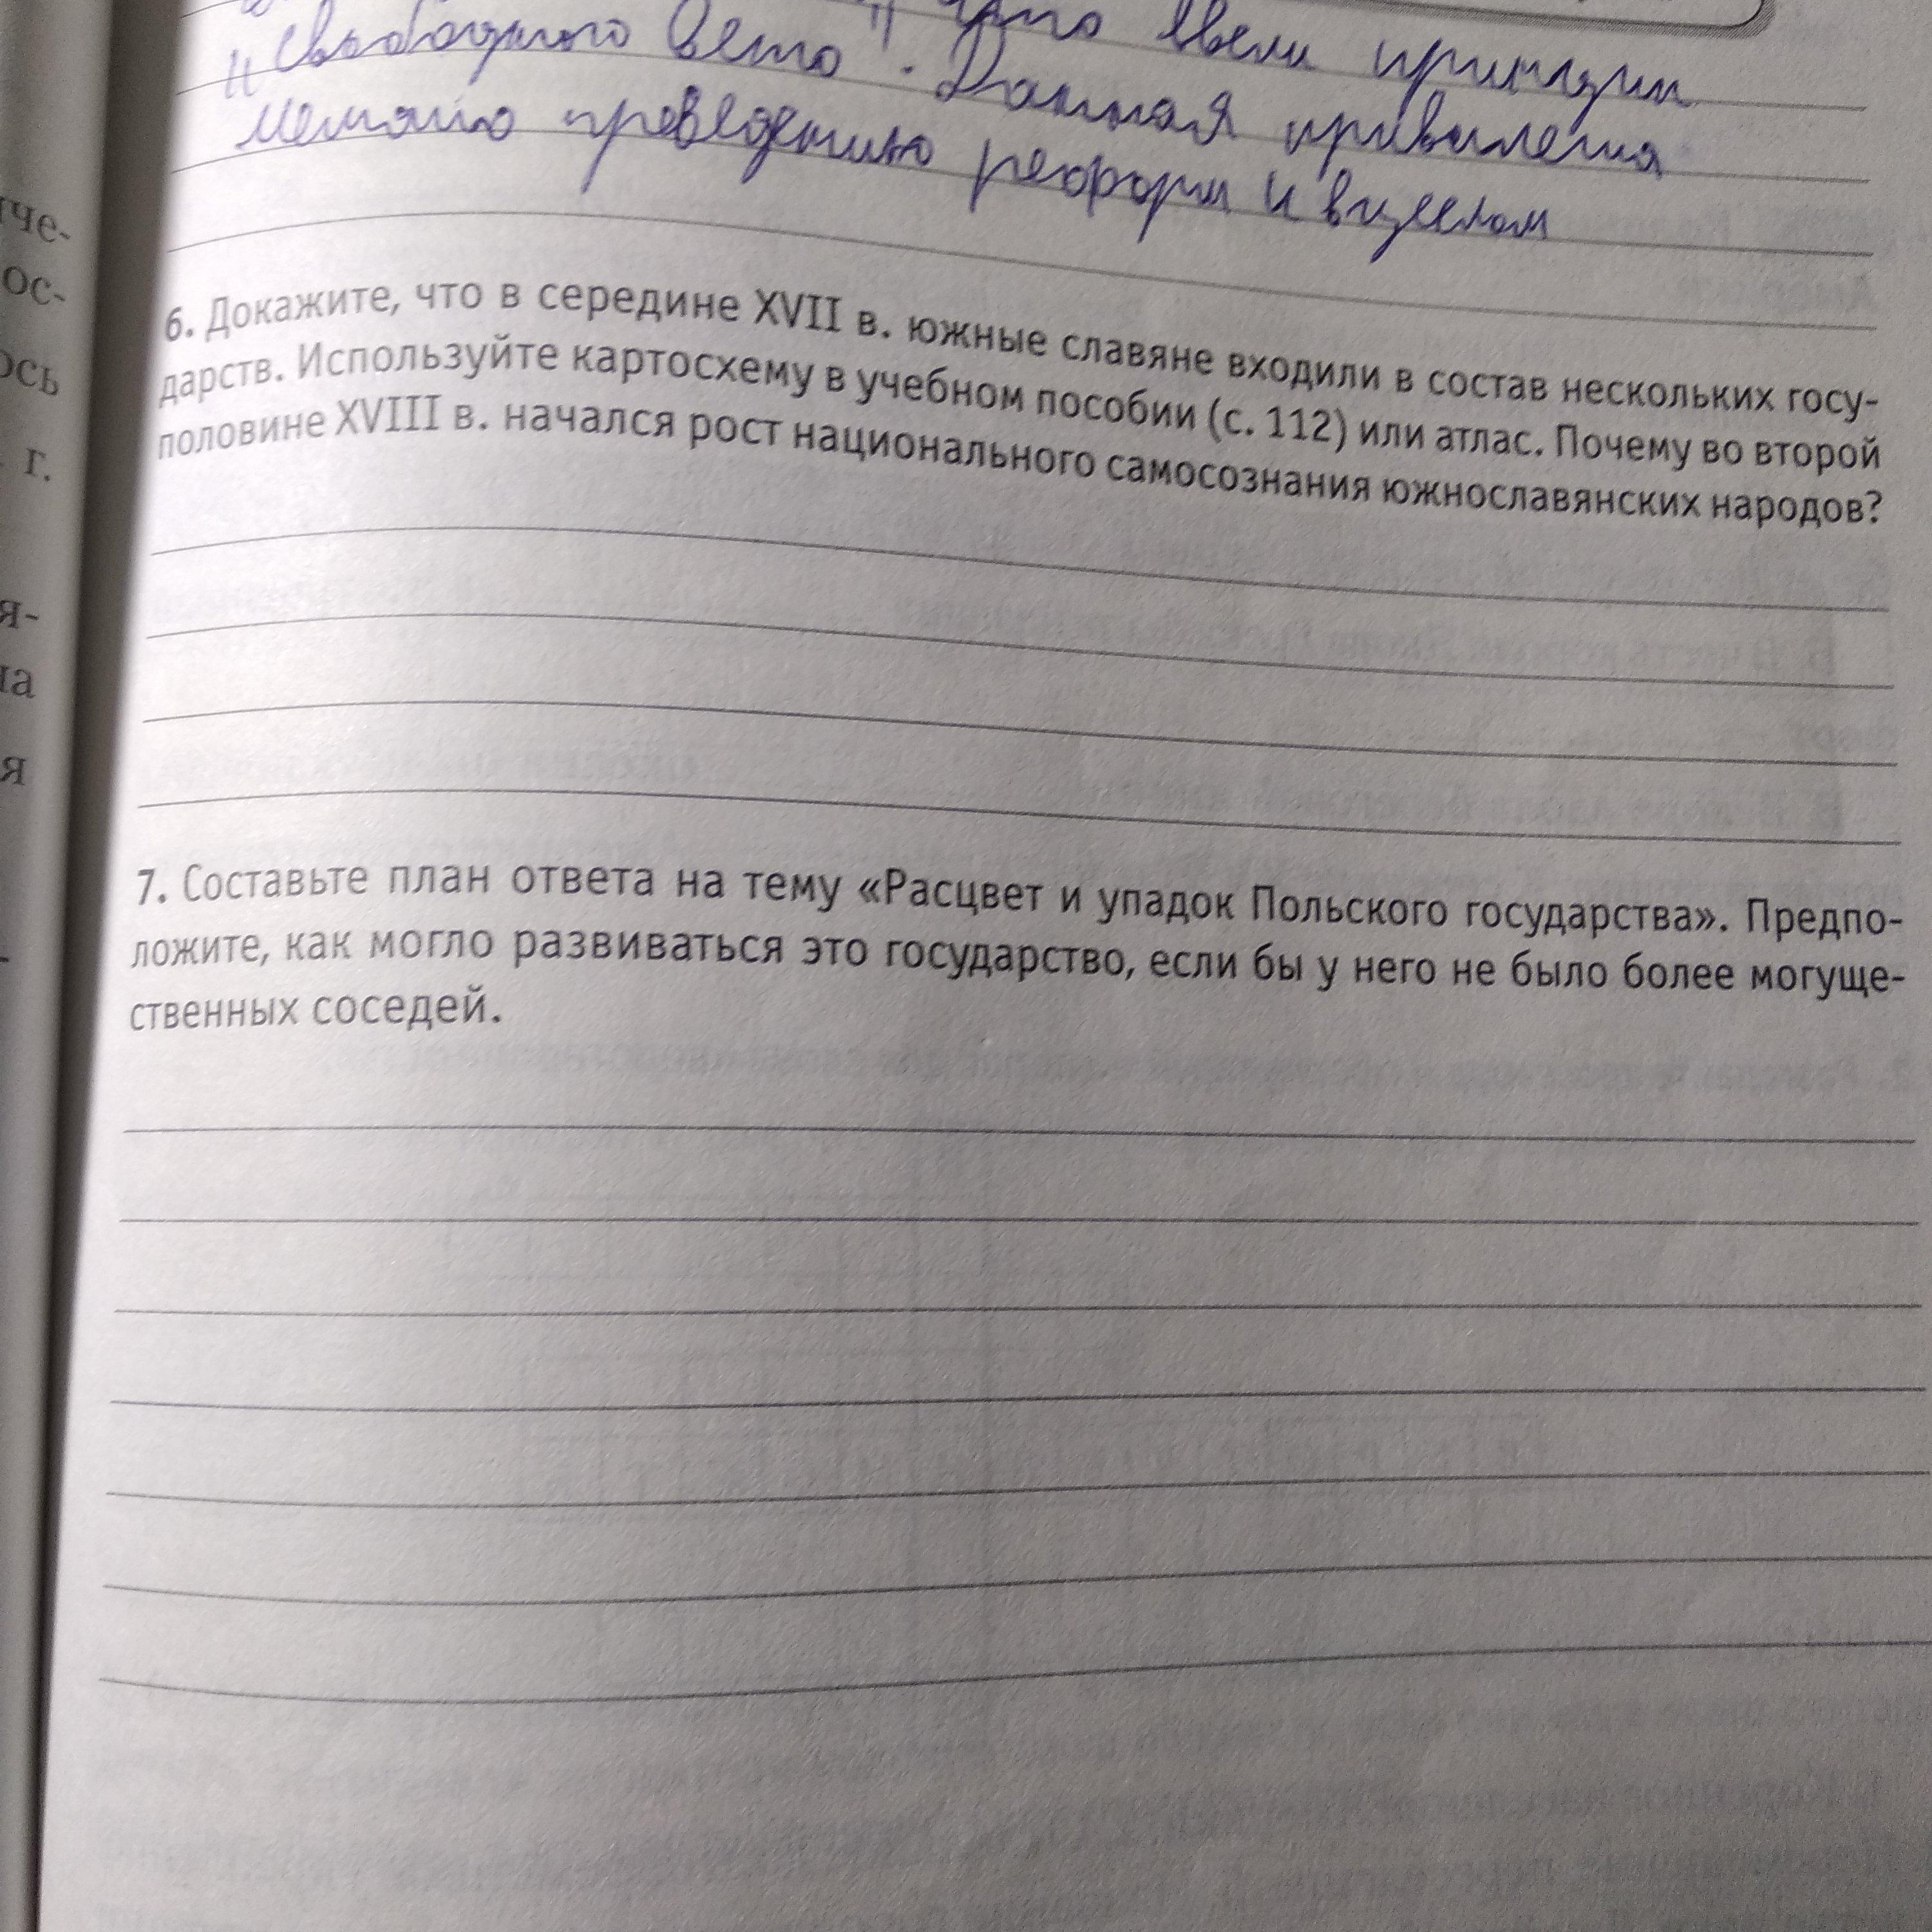 что ввели принцип
"свободного вето". Данная привилегия
мешала проведению реформ и в целом
6. Докажите, что в середине XVII в. южные славяне входили в состав нескольких госу-
дарств. Используйте картосхему в учебном пособии (с. 112) или атлас. Почему во второй
половине XVIII в. начался рост национального самосознания южнославянских народов?
7. Составьте план ответа на тему «Расцвет и упадок Польского государства». Предпо-
ложите, как могло развиваться это государство, если бы у него не было более могуще-
ственных соседей.
че-
ос-
ось
г.
я-
на
я